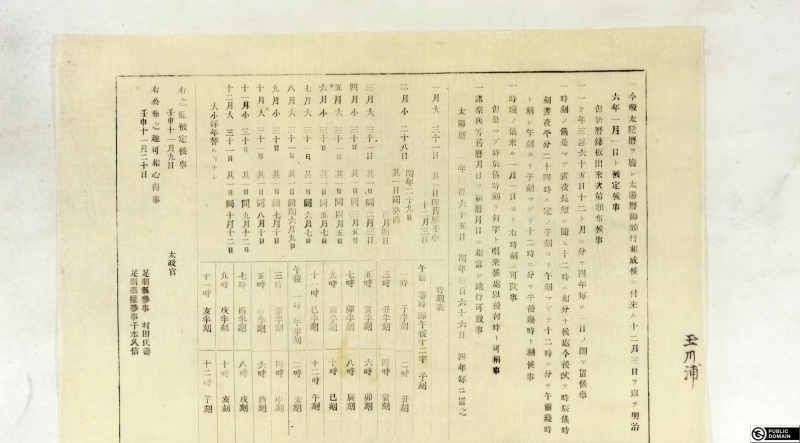 玉川浦
一今般太陰暦ヲ廃シ太陽暦御頒行相成候ニ付来ル十二月三日ヲ以テ明治
六年一月一日ト被定候事
但新暦鏤板出来次第頒布候事
一一ケ年三百六十五日十二ケ月ニ分チ四年毎ニ一日ノ閏ヲ置候事
一時刻ノ儀是マデ昼夜長短ニ随ヒ十二時ニ相分チ候処今後改テ時辰儀時
刻昼夜平分二十四時ニ定メ子刻ヨリ午刻マデヲ十二時ニ分チ午前幾時
ト称シ午刻ヨリ子刻マデヲ十二時ニ分チ午後幾時ト称候事
一時鐘ノ儀来ル一月一日ヨリ右時刻ニ可改事
但是マデ時辰儀時刻ヲ何字ト唱来候処以後何時ト可称事
一諸祭典等旧暦月日ヲ新暦月日ニ相当シ施行可致事
太陽暦 一年三百六十五日 閏年三百六十六日 四年毎ニ置之
一月大 三十一日 其一日即旧暦壬申
十二月三日
二月小 二十八日 閏年二十九日
其一日同癸酉
正月四日
三月大 三十一日 其一日同二月三日
四月小 三十日 其一日同三月五日
五月大 三十一日 其一日同四月五日
六月小 三十日 其一日同五月七日
七月大 三十一日 其一日同六月七日
八月大 三十一日 其一日同閏六月九日
九月小 三十日 其一日同七月十日
十月大 三十一日 其一日同八月十日
十一月小 三十日 其一日同九月十二日
十二月大 三十一日 其一日同十月十二日
大小毎年替ルコトナシ
時刻表
午前 零時 即午後十二字 子刻
一時 子半刻 二時 丑刻
三時 丑半刻 四時 寅刻
五時 寅半刻 六時 卯刻
七時 卯半刻 八時 辰刻
九時 辰半刻 十時 巳刻
十一時 巳半刻 十二時 午刻
午後 一時 午半刻 二時 未刻
三時 未半刻 四時 申刻
五時 申半刻 六時 酉刻
七時 酉半刻 八時 戌刻
九時 戌半刻 十時 亥刻
十一時 亥半刻 十二時 子刻
右之通被定候事
壬申十一月九日
太政官
右公布之趣可相心得事
壬申十一月二十日
足羽県参事 村田氏寿
足羽県権参事 千本久信
PUBLIC
DOMAIN